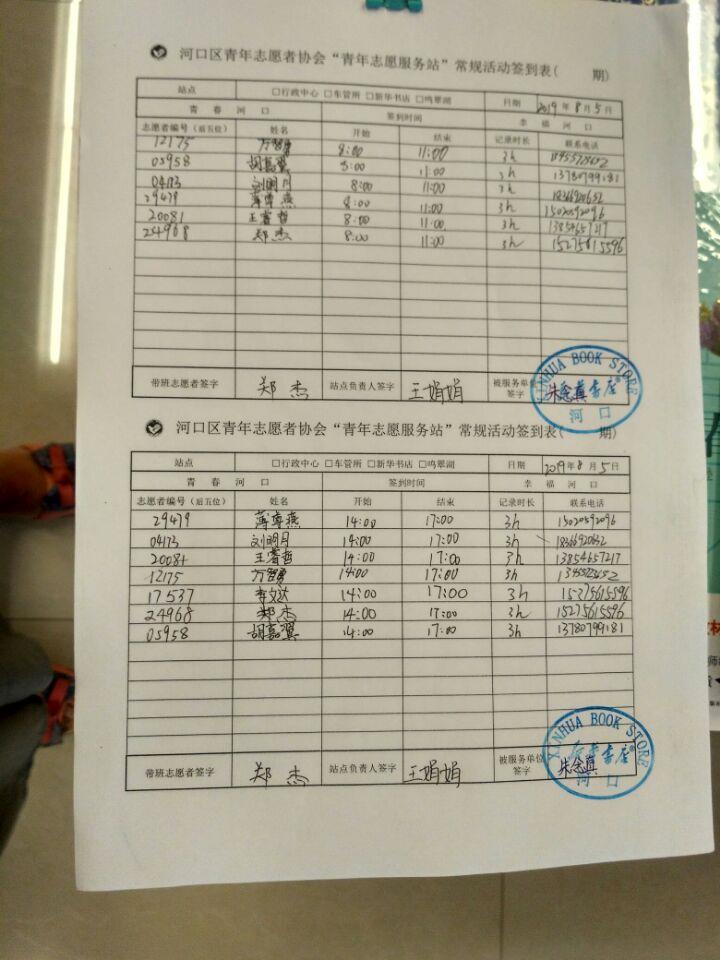 河口区青年志愿者协会“青年志愿服务站”常规活动签到表( 期)
站点 □行政中心 □车管所 □新华书店 □鸣翠湖 日期 2019年8月5日
青春河口 签到时间 幸福河口
志愿者编号(后五位) 姓名 开始 结束 记录时长 联系电话
12175 万智勇 8:00 11:00 3h
05958 胡嘉翼 8:00 11:00 3h 13780799181
04173 刘明月 8:00 11:00 3h 18366920632
29479 薄尊燕 8:00 11:00 3h 15020592096
20081 王睿哲 8:00 11:00 3h 13854657217
24968 郑杰 8:00 11:00 3h 15275615596
带班志愿者签字 郑杰 站点负责人签字 王娟娟 被服务单位签字 朱念真
XINHUA BOOK STORE
河口
河口区青年志愿者协会“青年志愿服务站”常规活动签到表( 期)
站点 □行政中心 □车管所 □新华书店 □鸣翠湖 日期 2019年8月5日
青春河口 签到时间 幸福河口
志愿者编号(后五位) 姓名 开始 结束 记录时长 联系电话
29479 薄尊燕 14:00 17:00 3h 15020592096
04173 刘明月 14:00 17:00 3h 18366920632
20081 王睿哲 14:00 17:00 3h 13854657217
12175 万智勇 14:00 17:00 3h
17537 李文达 14:00 17:00 3h 15275615596
24968 郑杰 14:00 17:00 3h 15275615596
05958 胡嘉翼 14:00 17:00 3h 13780799181
带班志愿者签字 郑杰 站点负责人签字 王娟娟 被服务单位签字 朱念真
XINHUA BOOK STORE
河口